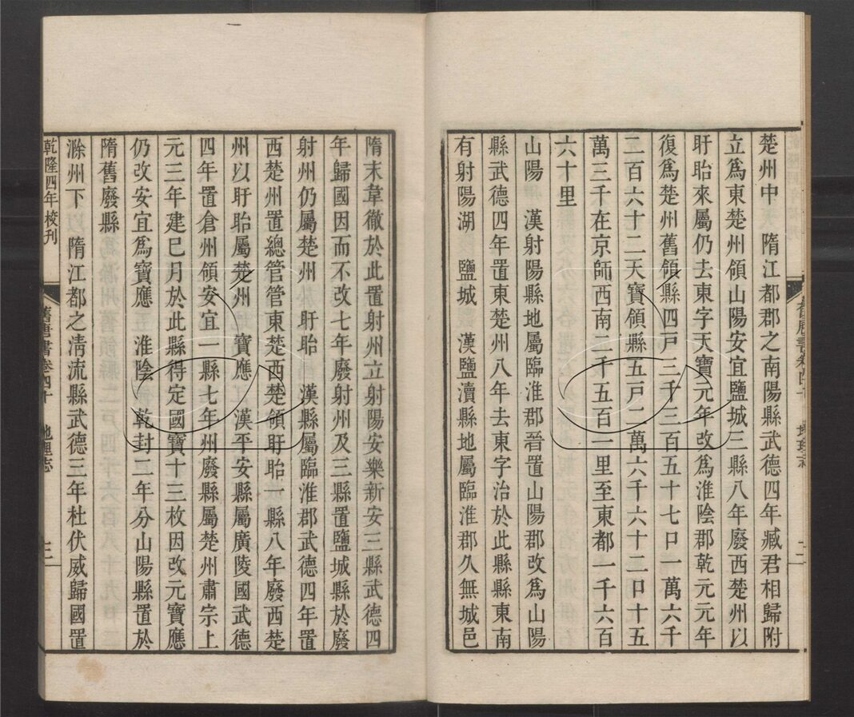 楚州中 隋江都郡之南陽縣武德四年臧君相歸附
立爲東楚州領山陽安宜鹽城三縣八年廢西楚州以
盱眙來屬仍去東字天寶元年改爲淮陰郡乾元元年
復爲楚州舊領縣四戸三千三百五十七口一萬六千
二百六十二天寶領縣五戸二萬六千六十二口十五
萬三千在京師西南二千五百一里至東都一千六百
六十里
山陽 漢射陽縣地屬臨淮郡晉置山陽郡改爲山陽
縣武德四年置東楚州八年去東字治於此縣縣東南
有射陽湖 鹽城 漢鹽瀆縣地屬臨淮郡久無城邑
隋末韋徹於此置射州立射陽安樂新安三縣武德四
年歸國因而不改七年廢射州及三縣置鹽城縣於廢
射州仍屬楚州 盱眙 漢縣屬臨淮郡武德四年置
西楚州置總管管東楚西楚領盱眙一縣八年廢西楚
州以盱眙屬楚州 寶應 漢平安縣屬廣陵國武德
四年置倉州領安宜一縣七年州廢縣屬楚州肅宗上
元三年建巳月於此縣得定國寶十三枚因改元寶應
仍改安宜爲寶應 淮陰 乾封二年分山陽縣置於
隋舊廢縣
滁州下 隋江都之清流縣武德三年杜伏威歸國置
乾隆四年校刊
舊唐書卷四十 地理志